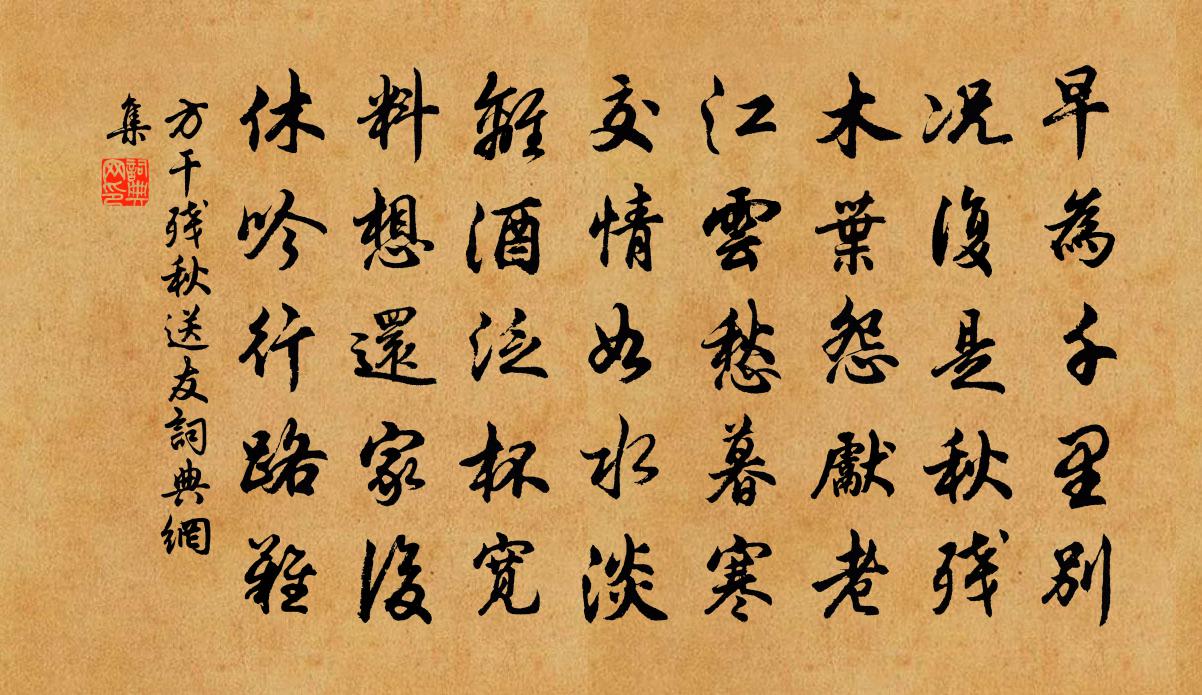 早為千里別
况復是秋残
木葉怨獻老
江雲愁暮寒
交情如水淡
離酒泛杯寬
料想還家後
休吟行路難
方干残秋送友詞典網
集
詞典
网印